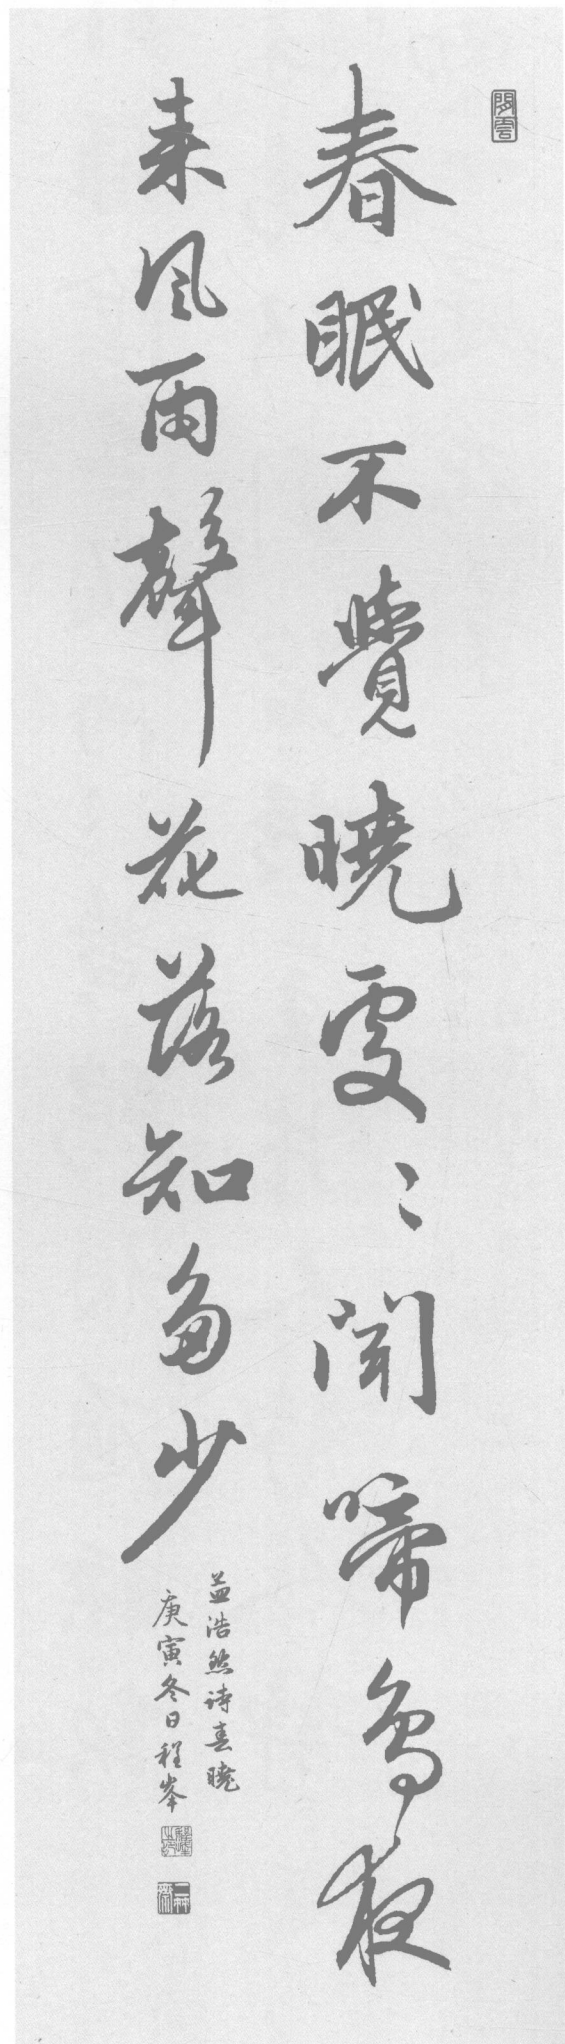 春眠不覺曉處〻聞啼鳥夜
来風雨聲花落知多少
孟浩然诗春曉
庚寅冬日程峯